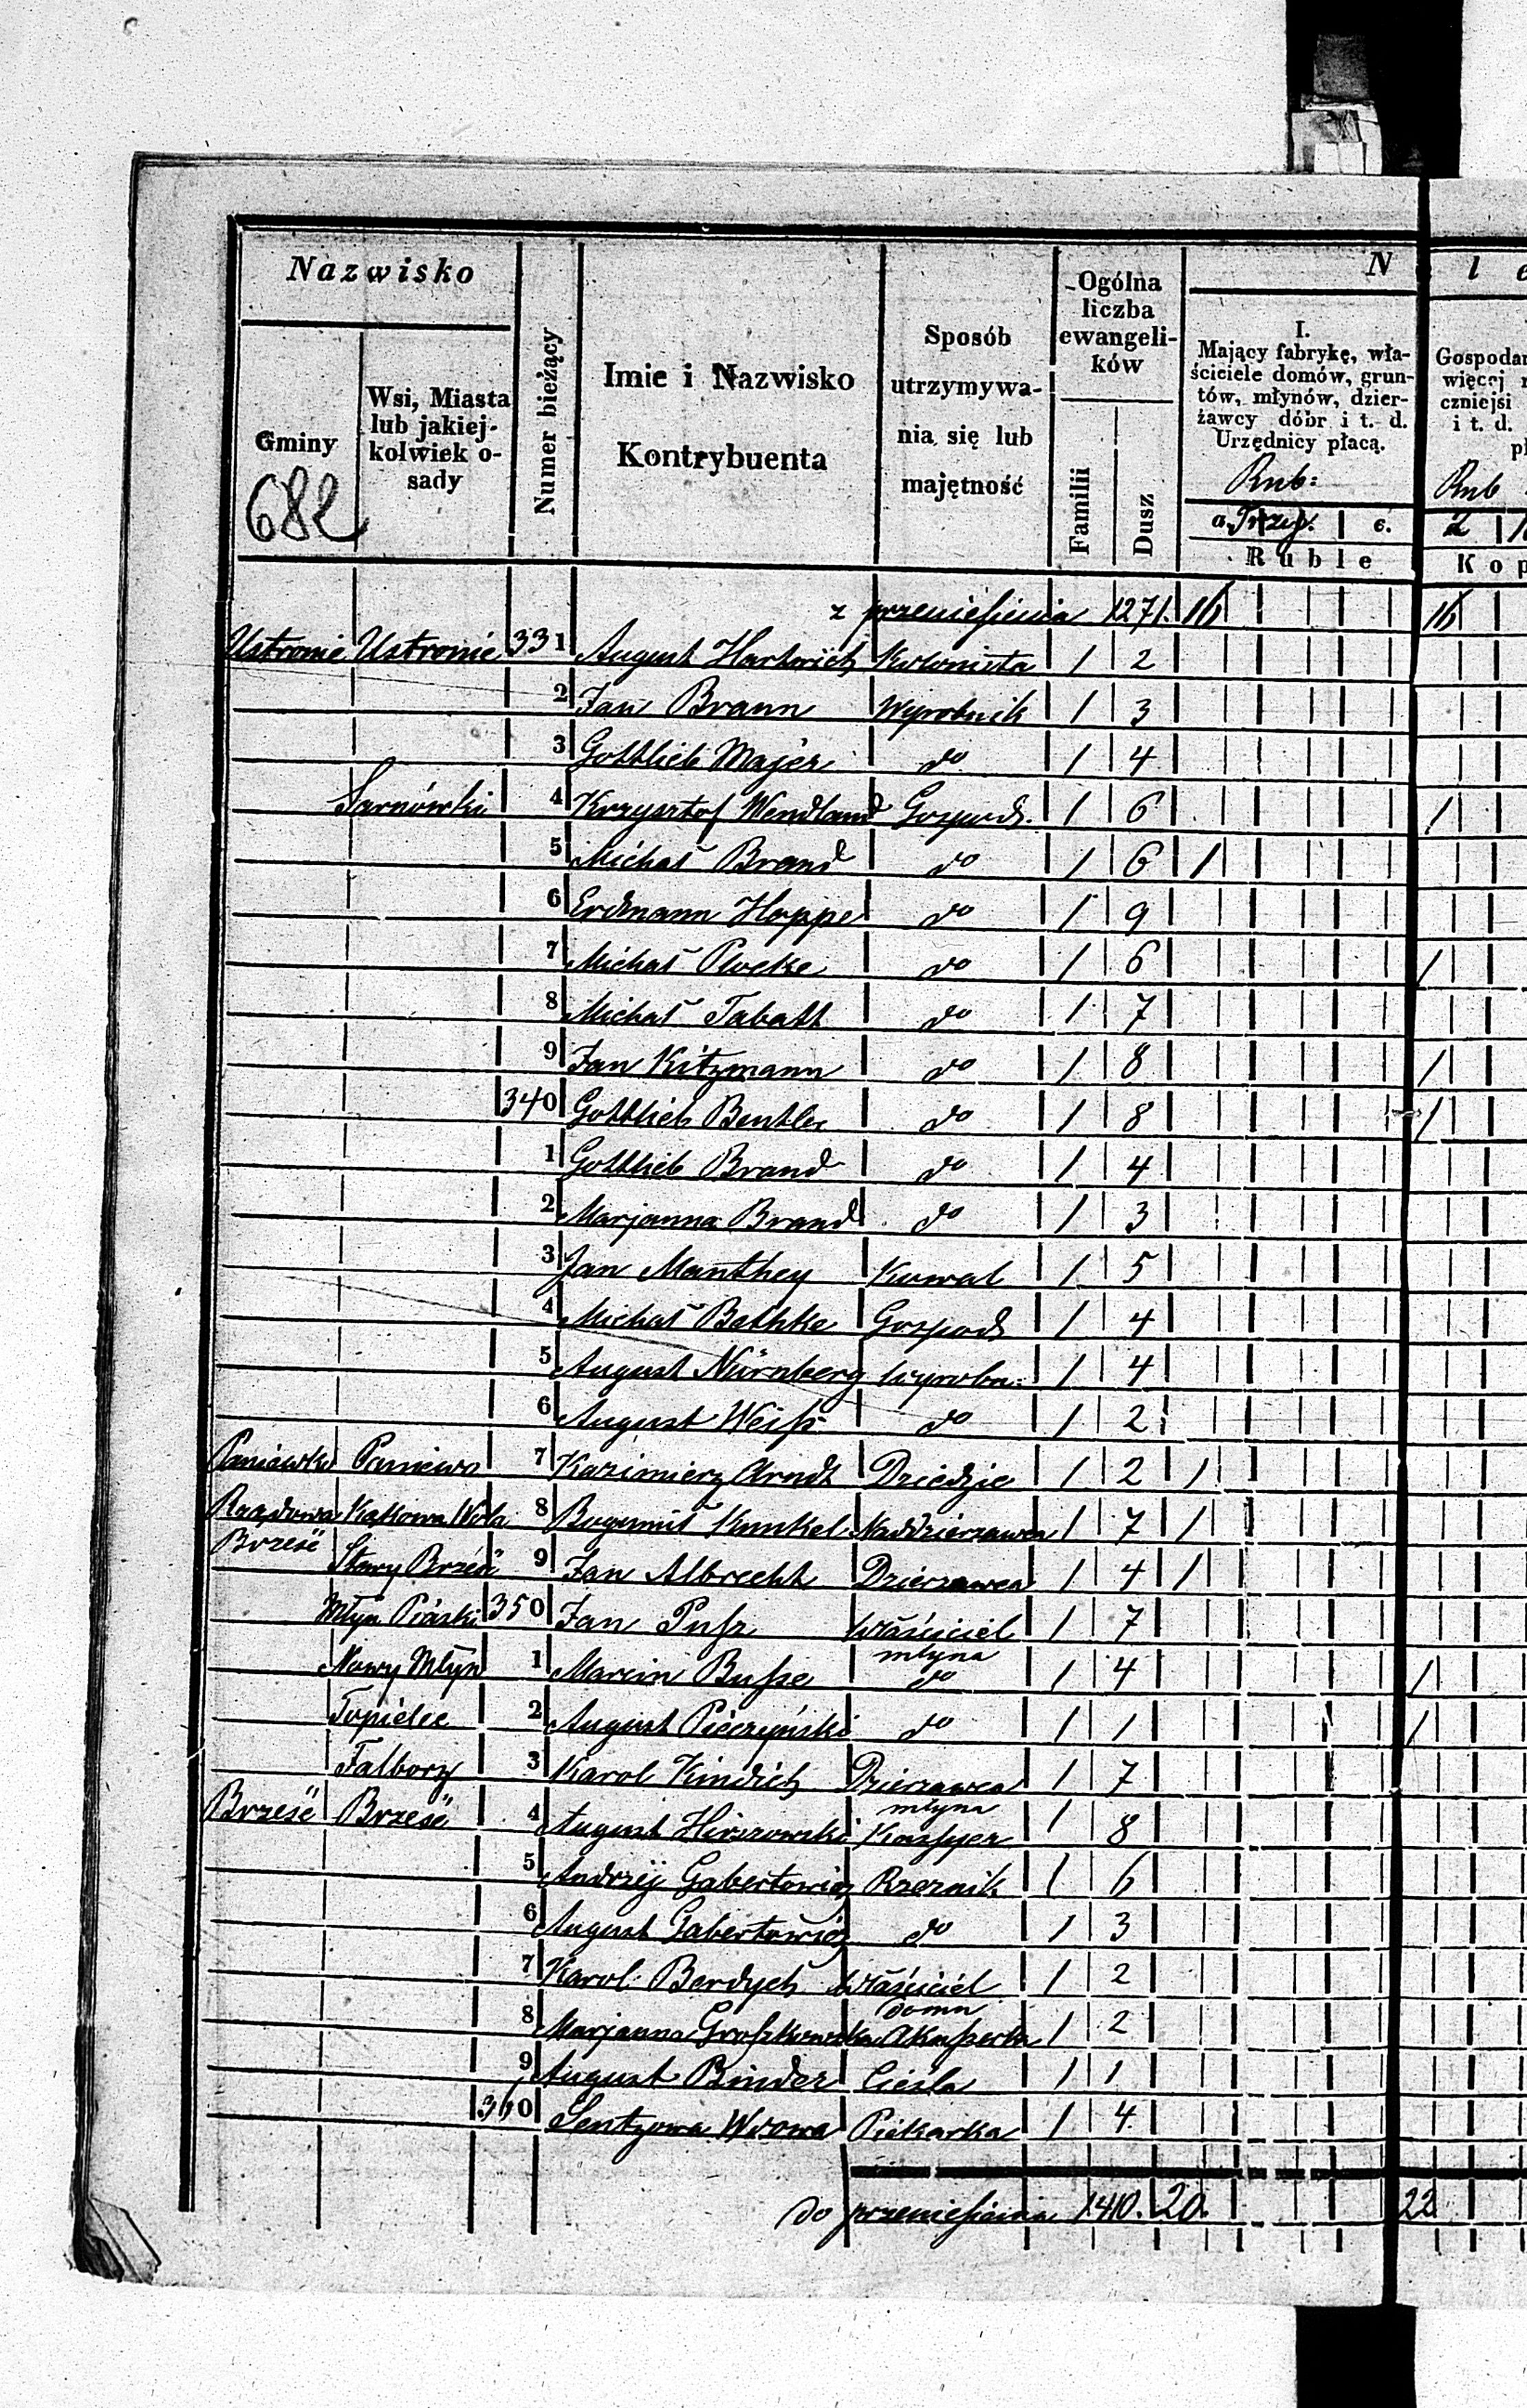 Nazwisko
Gminy
Wsi, Miasta
lub jakiej-
kolwiek o-
sady
682
Numer bieżący
Imie i Nazwisko
Kontrybuenta
Sposób
utrzymywa-
nia się lub
majętność
Ogólna
liczba
ewangeli-
ków
Familii
Dusz
N l e
I.
Mający fabrykę, wła-
ściciele domów, grun-
tów, młynów, dzier-
żawcy dóbr i t. d.
Urzędnicy płacą.
Rub:
a. Trzy. c.
Ruble
Gospodar
więcej
czniejsi
i t. d.
Rub
2
Kop
z przeniesienia 1271. 16 16
Ustronie Ustronie 331 August Hartwich Kolonista 1 2
2 Jan Braun Wyrobnik 1 3
3 Gottlieb Majer do 1 4
Sarnówki 4 Krzysztof Wendland Gospod. 1 6 1
5 Michał Brand do 1 6 1
6 Erdmann Hoppe do 1 9
7 Michał Plocke do 1 6 1
8 Michał Tabatt do 1 7
9 Jan Kitzmann do 1 8 1
340 Gottlieb Bentler do 1 8 1
1 Gottlieb Brand do 1 4
2 Marjanna Brand do 1 3
3 Jan Manthey Kowal 1 5
4 Michał Bethke Gospod 1 4
5 August Nürnberg wyrobn: 1 4
6 August Weiß do 1 2
Paniewko Paniewo 7 Kazimierz Arndt Dziedzic 1 2 1
Rządowa Kąkowa Wola 8 Bogumił Kunkel Naddzierzawca 1 7 1
Brześć Stary Brześć 9 Jan Albrecht Dzierzawca 1 4 1
Młyn Piaski 350 Jan Właściciel 1 7
młyna
Nowy Młyn 1 Marcin Buße do 1 4 1
Topielec 2 August Pieczyński do 1 1 1
Falborz 3 Karol Kindich Dzierzawca 1 7
młyna
Brześć Brześć 4 August Hirszowski Kaßyer 1 8
5 Andrzéj Gabertowicz Rzeznik 1 6
6 August Gabertowicz do 1 3
7 Karol Berdych Właściciel 1 2
domu
8 Marjanna Großkowska Akußerka 1 2
9 August Binder Cieśla 1 1
360 Sentzowa Wdowa Piekarka 1 4
do przeniesienia 1410. 20. 22